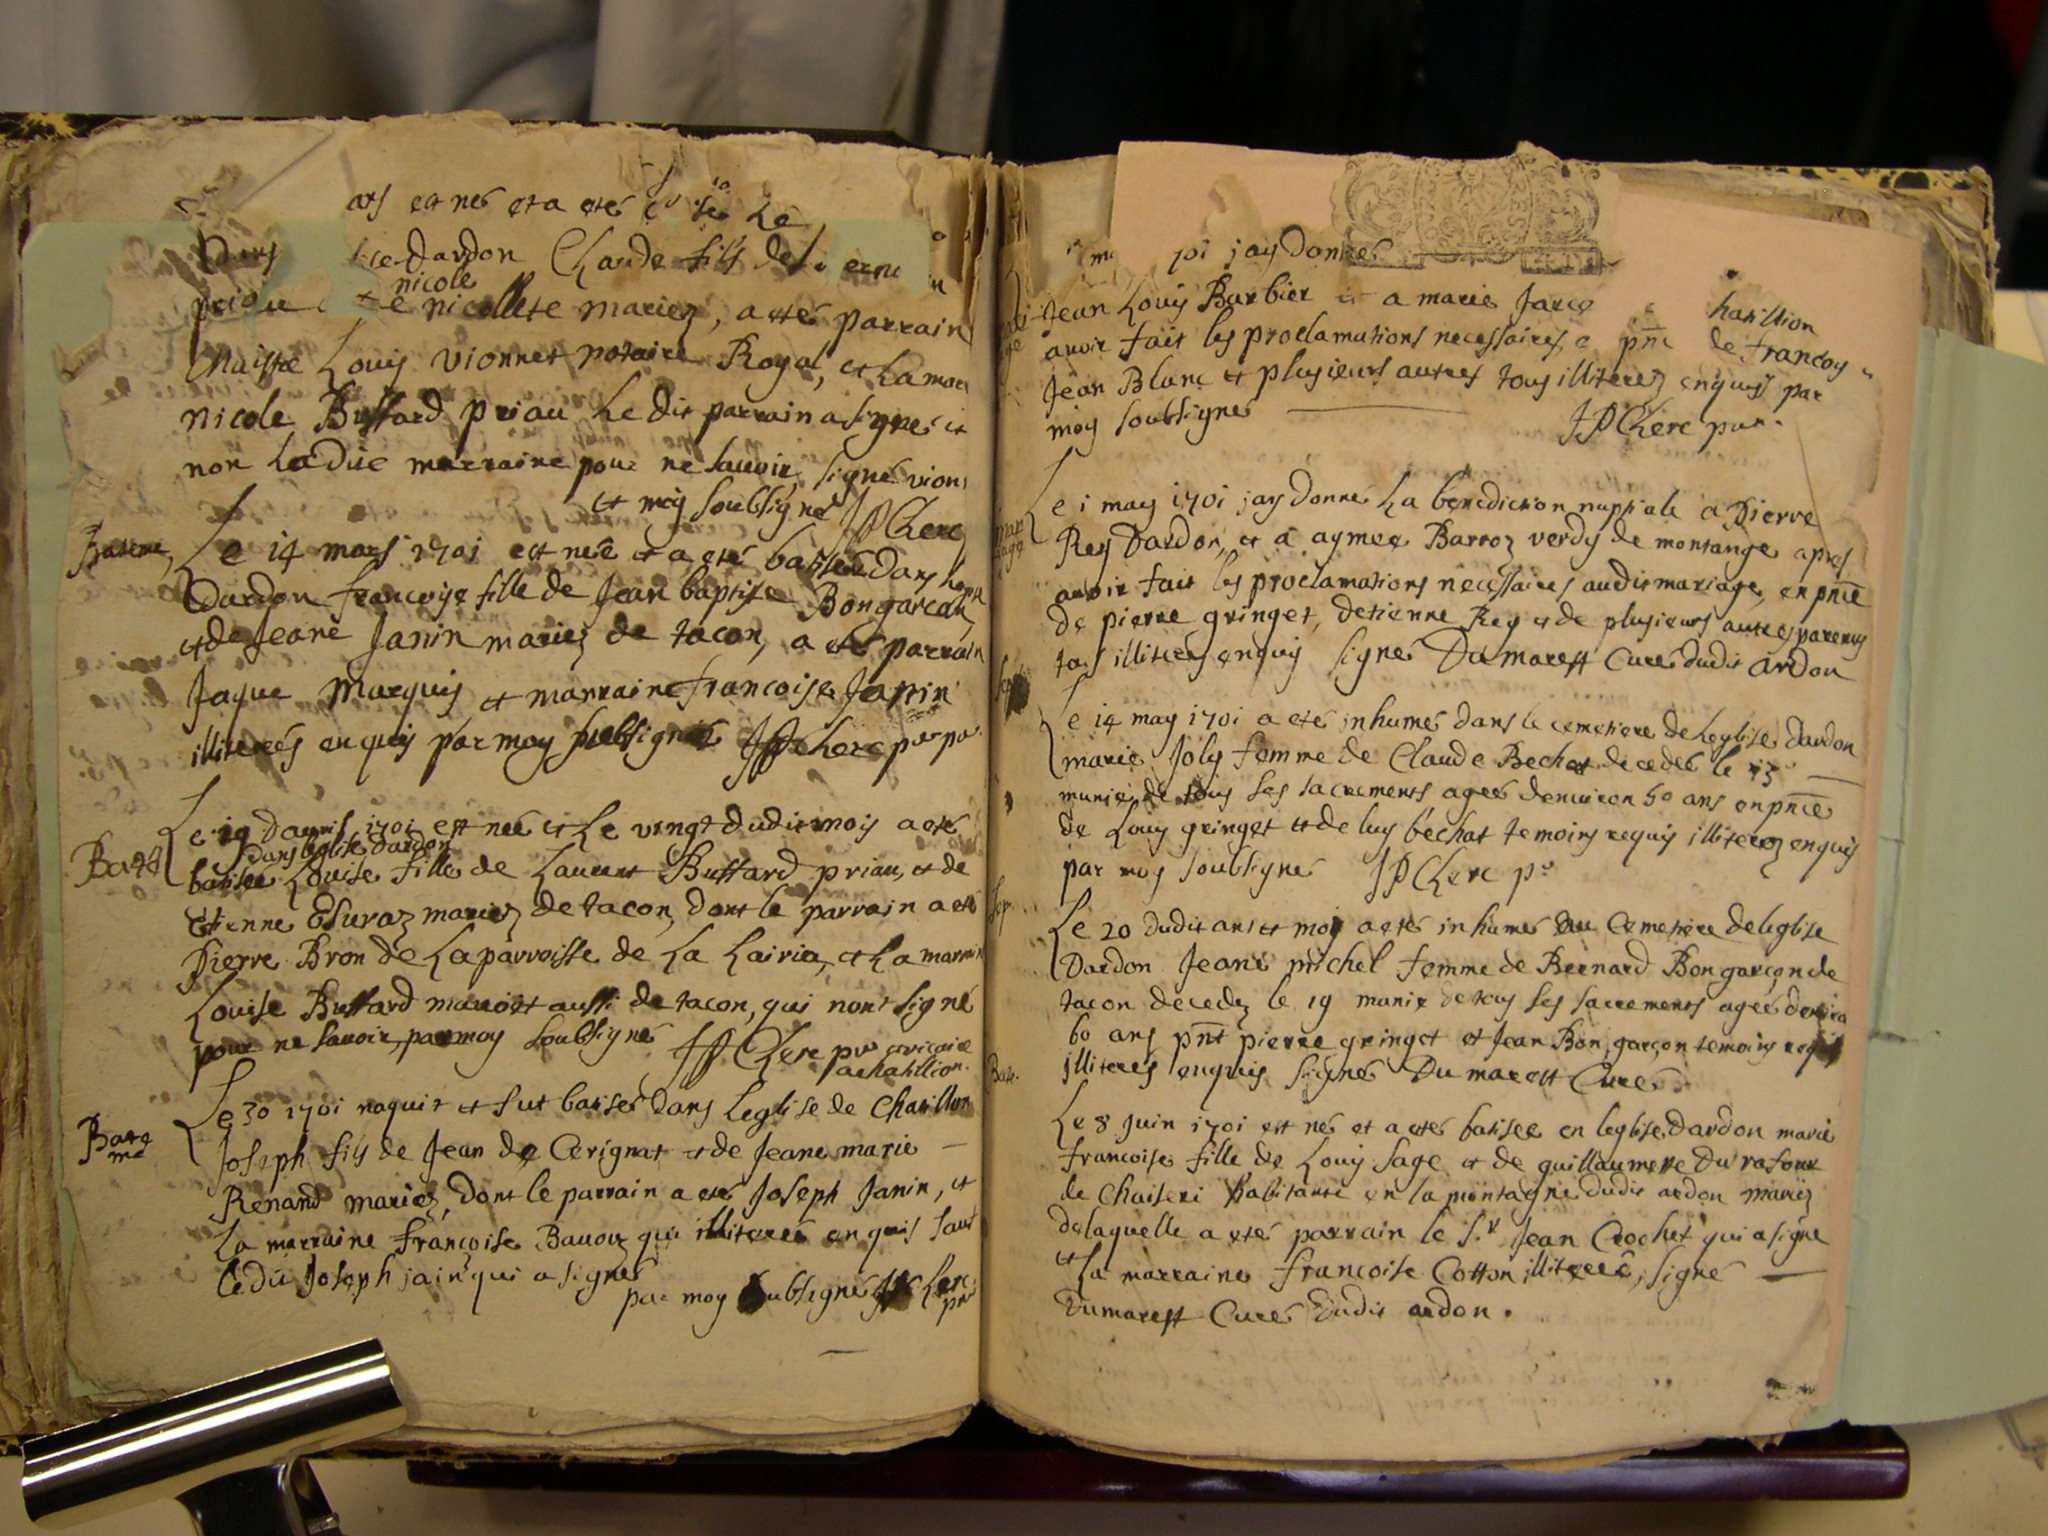 ars est nés et a etés le
Dans Dardon Claude fils de
nicole
priau nicollete mariez, a etés parrain
Louis vionnet notaire Royal, et la mar
nicole Buffard priau Le dit parrain a signé et
non Ladite marraine pour ne savoir, signé vion
et moy soubsigné JP Clerc
Bateme
Le 14 mars 1701 est neé et a eté batisée dans
Dardon francoise fille de Jean baptiste Bongarcon
et de Jeane Janin mariez de tacon, a etés parrain
Jaque Marquis et marraine francoise Janin
illiterés enquis par moy soubsignés JP Clerc
Bate
Le 19 Davril 1701 est neé et Le vingt dudit mois a eté
dans leglise dardon
batisee Louise fille de Laurent Buffard priau, et de
Etienne mariez de tacon, dont le parrain a eté
Pierre Bron de La parroisse de La Lairia, et La marrain
Louise Buffard mavoit aussi de tacon, qui nont signé
pour ne savoir, par moy soubsigné JP Clerc vicaire
a chatillion.
Bate
me
Le 30 1701 naquit et fut batisé dans Leglise de Chatillon
Joseph fils de Jean de Cerignat et de Jeane marie
Renand mariez, dont le parrain a eté Joseph Janin, et
La marraine françoise qui illiterés enquis sauf
Ledit Joseph janin qui a signés
par moy soubsigné JP Clerc
jay donnés
Jean Louis Barbier a marie hatillion
avoir fait les proclamations necessaires pnce de francoy
Jean Blanc et plusieurs autres tous illiterez enquis par
moy soubsignés JP Clerc
mari
age
Le 1 may 1701 jay donnés La benediction nuptiale a Pierre
Rey Dardon, et a aymee Barroz verdy de montange apres
avoir fait les proclamations necessaires audit mariage, en pnce
de pierre gringet, detienne Rey et de plusieurs autres parents
tous illiterés enquis signés Dumarest Curés dudit ardon
Le 14 may 1701 a etés inhumés dans le cemetiere de Leglise dardon
marie Joly femme de Claude Bechat decedée le 13
munie de tous ses sacrements ageé denviron 50 ans en pnce
de Louy gringet et de luy bechat temoins requis illiterez enquis
par moy soubsignés JP Clerc
Le 20 dudit ans et moy a etés inhumés au Cemetiere de leglise
Dardon Jeane michel femme de Bernard Bongarçon de
tacon decedez le 19 munie de tous ses sacrements ageé denviro
60 ans pnt pierre gringet et Jean Bon garçon temoins requis
illiterés enquis signés Dumarest Curés
Bate.
Le 8 Juin 1701 est nés et a etés batisee en leglise Dardon marie
francoise fille de Louy sage et de guillaumette Du rafour
de Chaiseri habitants en la montagne dudit ardon mariez
delaquelle a etés parrain le sr. Jean Crochet qui a signé
et la marraine francoise Cotton illitereé, signé
Dumarest Curés Dudit ardon.